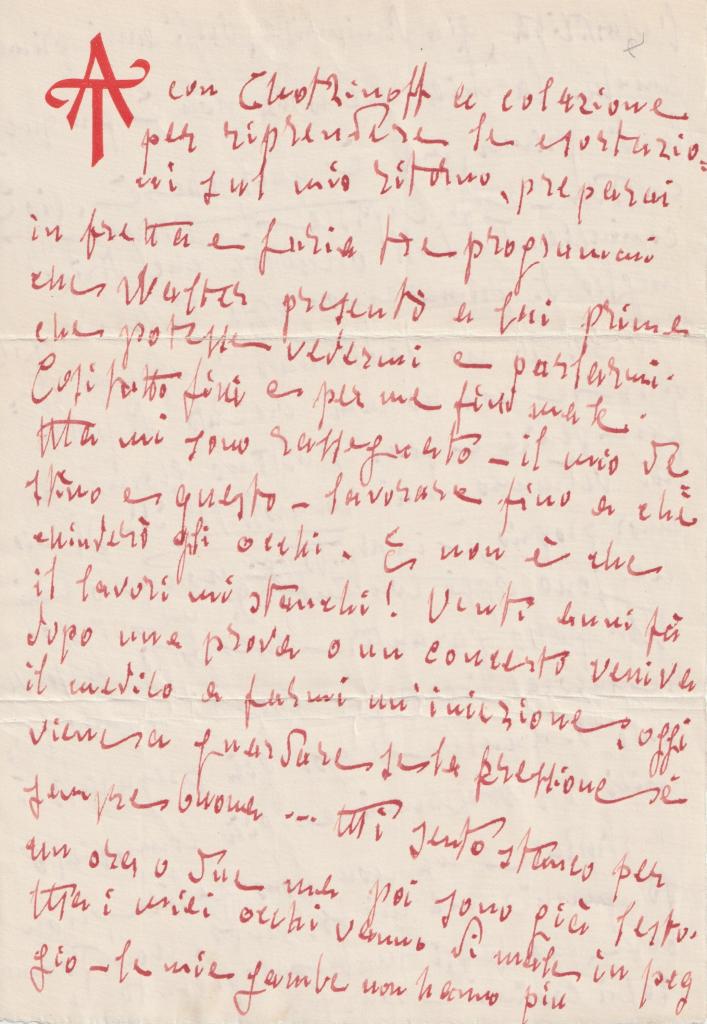 AT
con Chotzinoff a colazione
per riprendere le esortazio=
ni sul mio ritorno, preparai
in fretta e furia tre programmi
che Walter presentò a lui prima
che potesse vedermi e parlarmi.
Così tutto finì e per me finì male.
Ma mi sono rassegnato – il mio de
stino è questo – lavorare fino a che
chiuderò gli occhi. E non è che
il lavori mi stanchi! Venti anni fà
dopo una prova o un concerto veniva
il medico a farmi un'iniezione; oggi
viene a guardare se la pressione è
sempre buona ... Mi sento stanco per
un ora o due ma poi sono già lesto.
Ma i miei occhi vanno di male in peg
gio – le mie gambe non hanno più